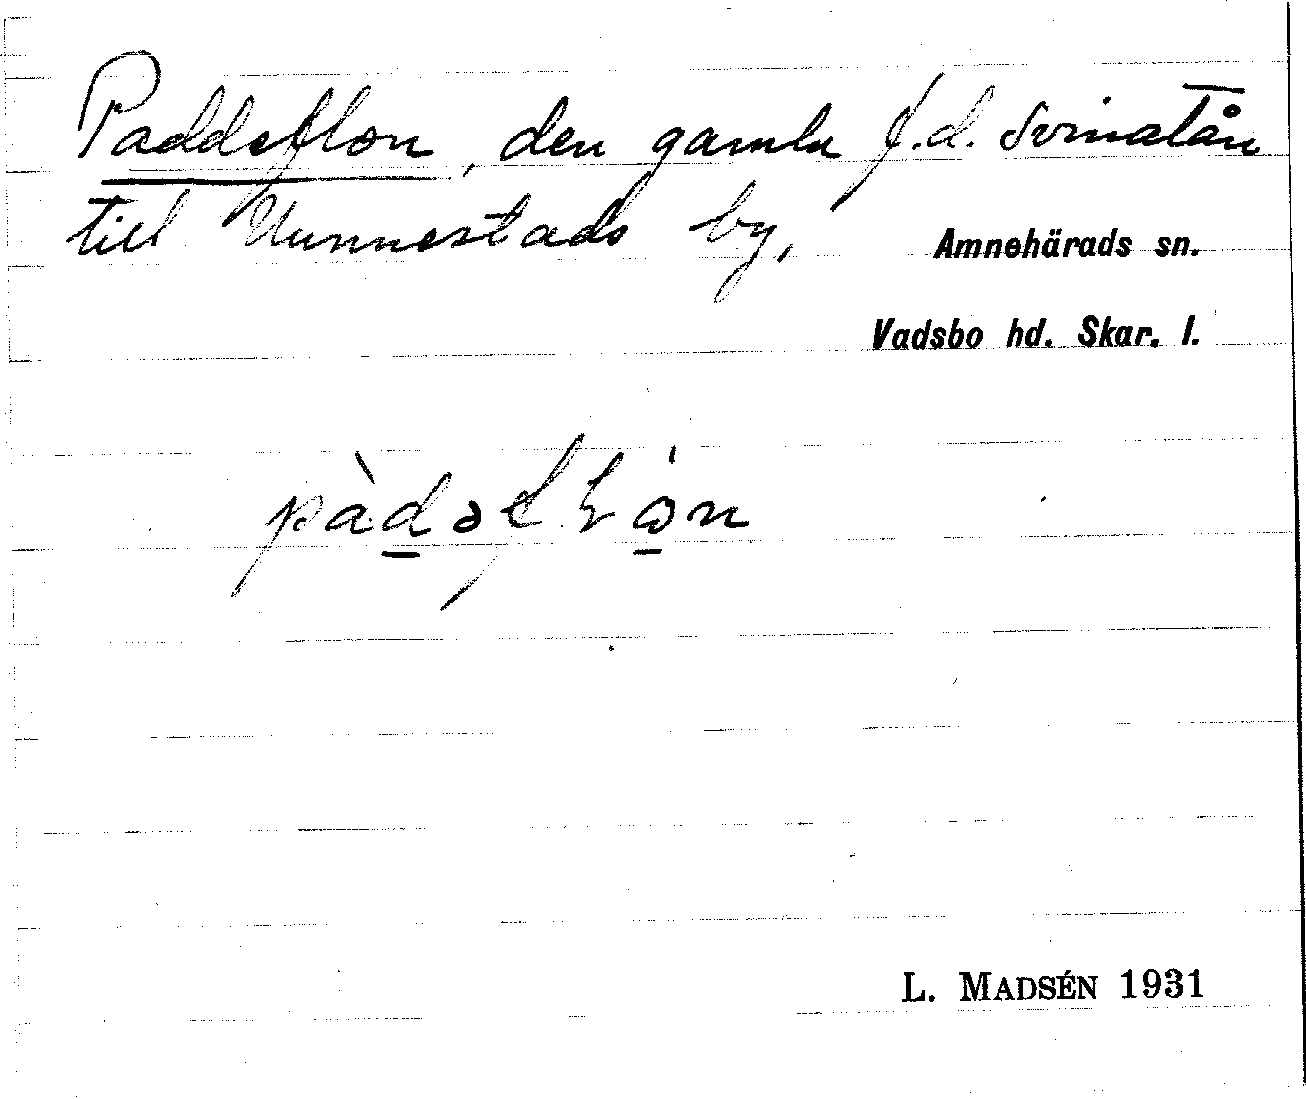 Paddeflon, den gamla f.d. svinatån
till Unnestads by,
Amnehärads sn.
Vadsbo hd. Skar. l.
L. MADSÉN 1931